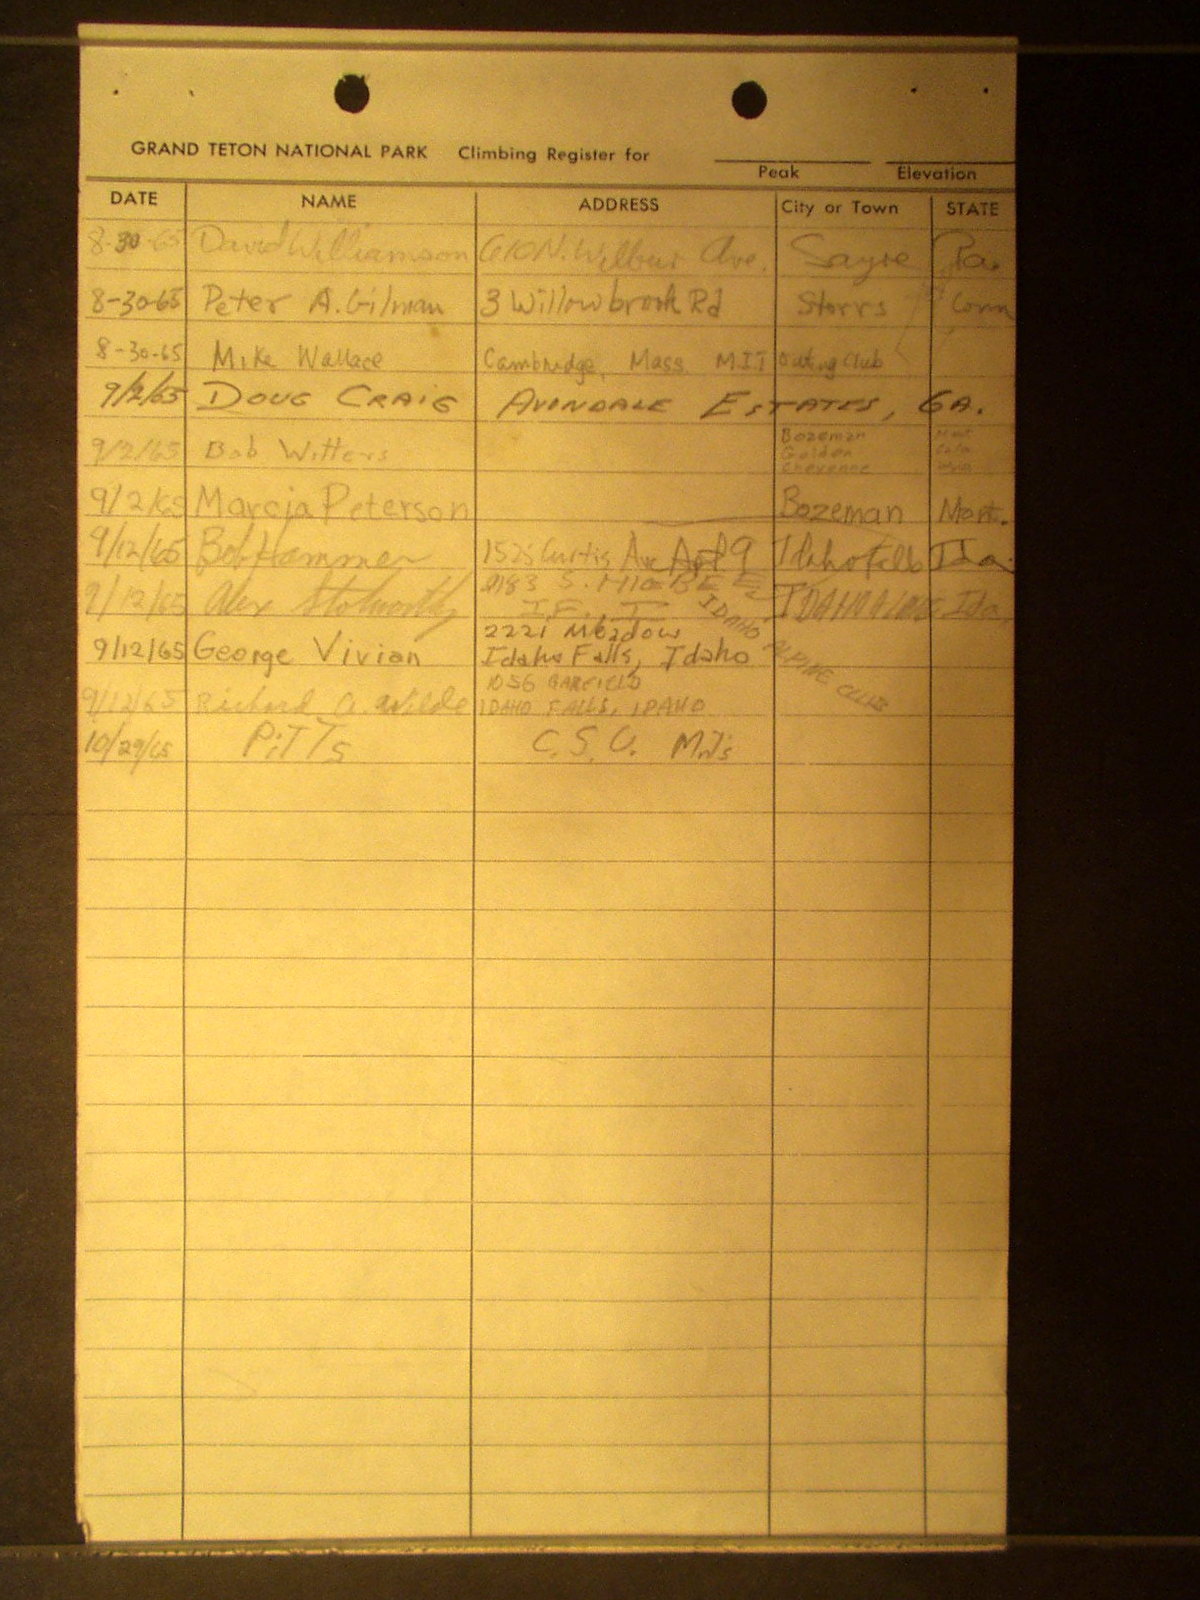 GRAND TETON NATIONAL PARK Climbing Register for
Peak Elevation
DATE NAME ADDRESS City or Town STATE
8-30-65 David Williamson 610 N. Wilbur Ave. Sayre Pa.
8-30-65 Peter A. Gilman 3 Willowbrook Rd Storrs Conn
8-30-65 Mike Wallace Cambridge, Mass. M.I.T Outing Club
9/2/65 DOUG CRAIG AVONDALE ESTATES, GA.
9/2/65 Bob Witters Bozeman Mont
Golden Colo
Cheyenne
9/2/65 Marcia Peterson Bozeman Mont.
9/12/65 Bob Hammer 1525 Curtis Ave Apt 9 Idaho Falls Ida.
9/12/65 Alex S. HIGBEE
I.F. I IDAHO FALLS, Ida.
IDAHO ALPINE CLUB
9/12/65 George Vivian 2221 Meadow
Idaho Falls, Idaho
9/12/65 Richard A. Wilde 1056 GARFIELD
IDAHO FALLS, IDAHO
10/29/65 PiTTs C.S.U.